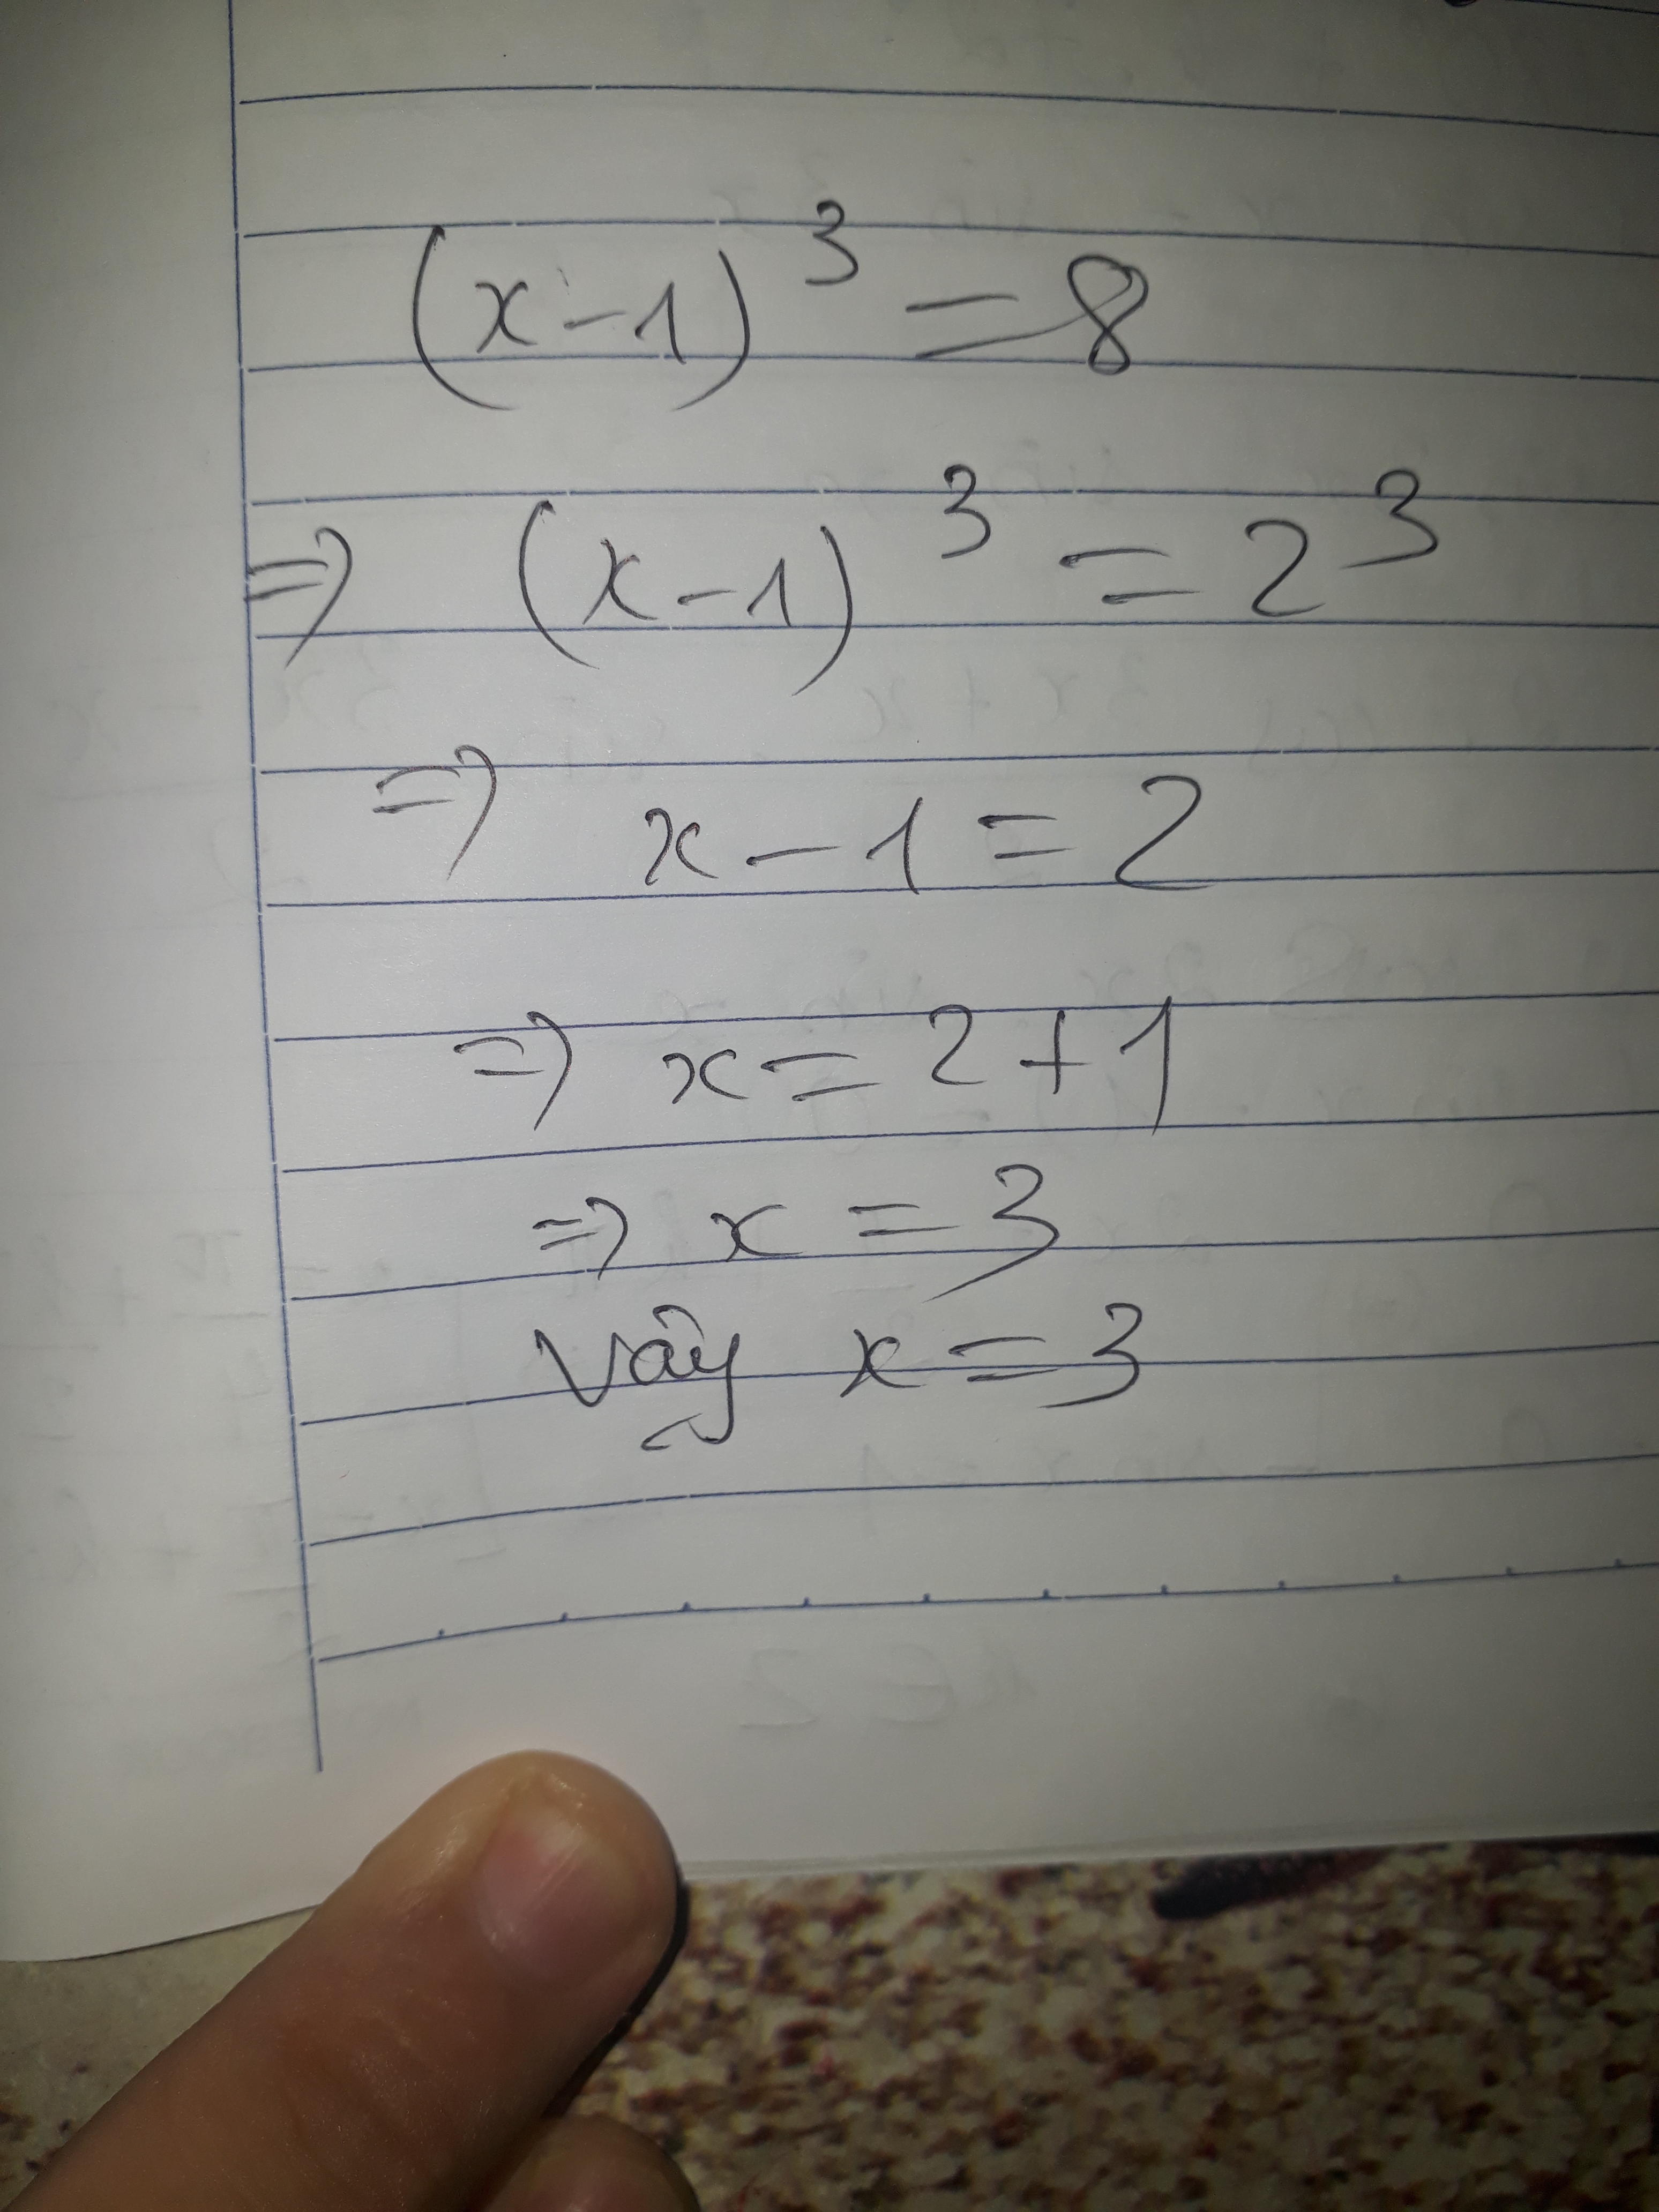 (x-1)³ = 8
=> (x-1)³ = 2³
=> x - 1 = 2
=> x = 2 + 1
=> x = 3
Vậy x = 3